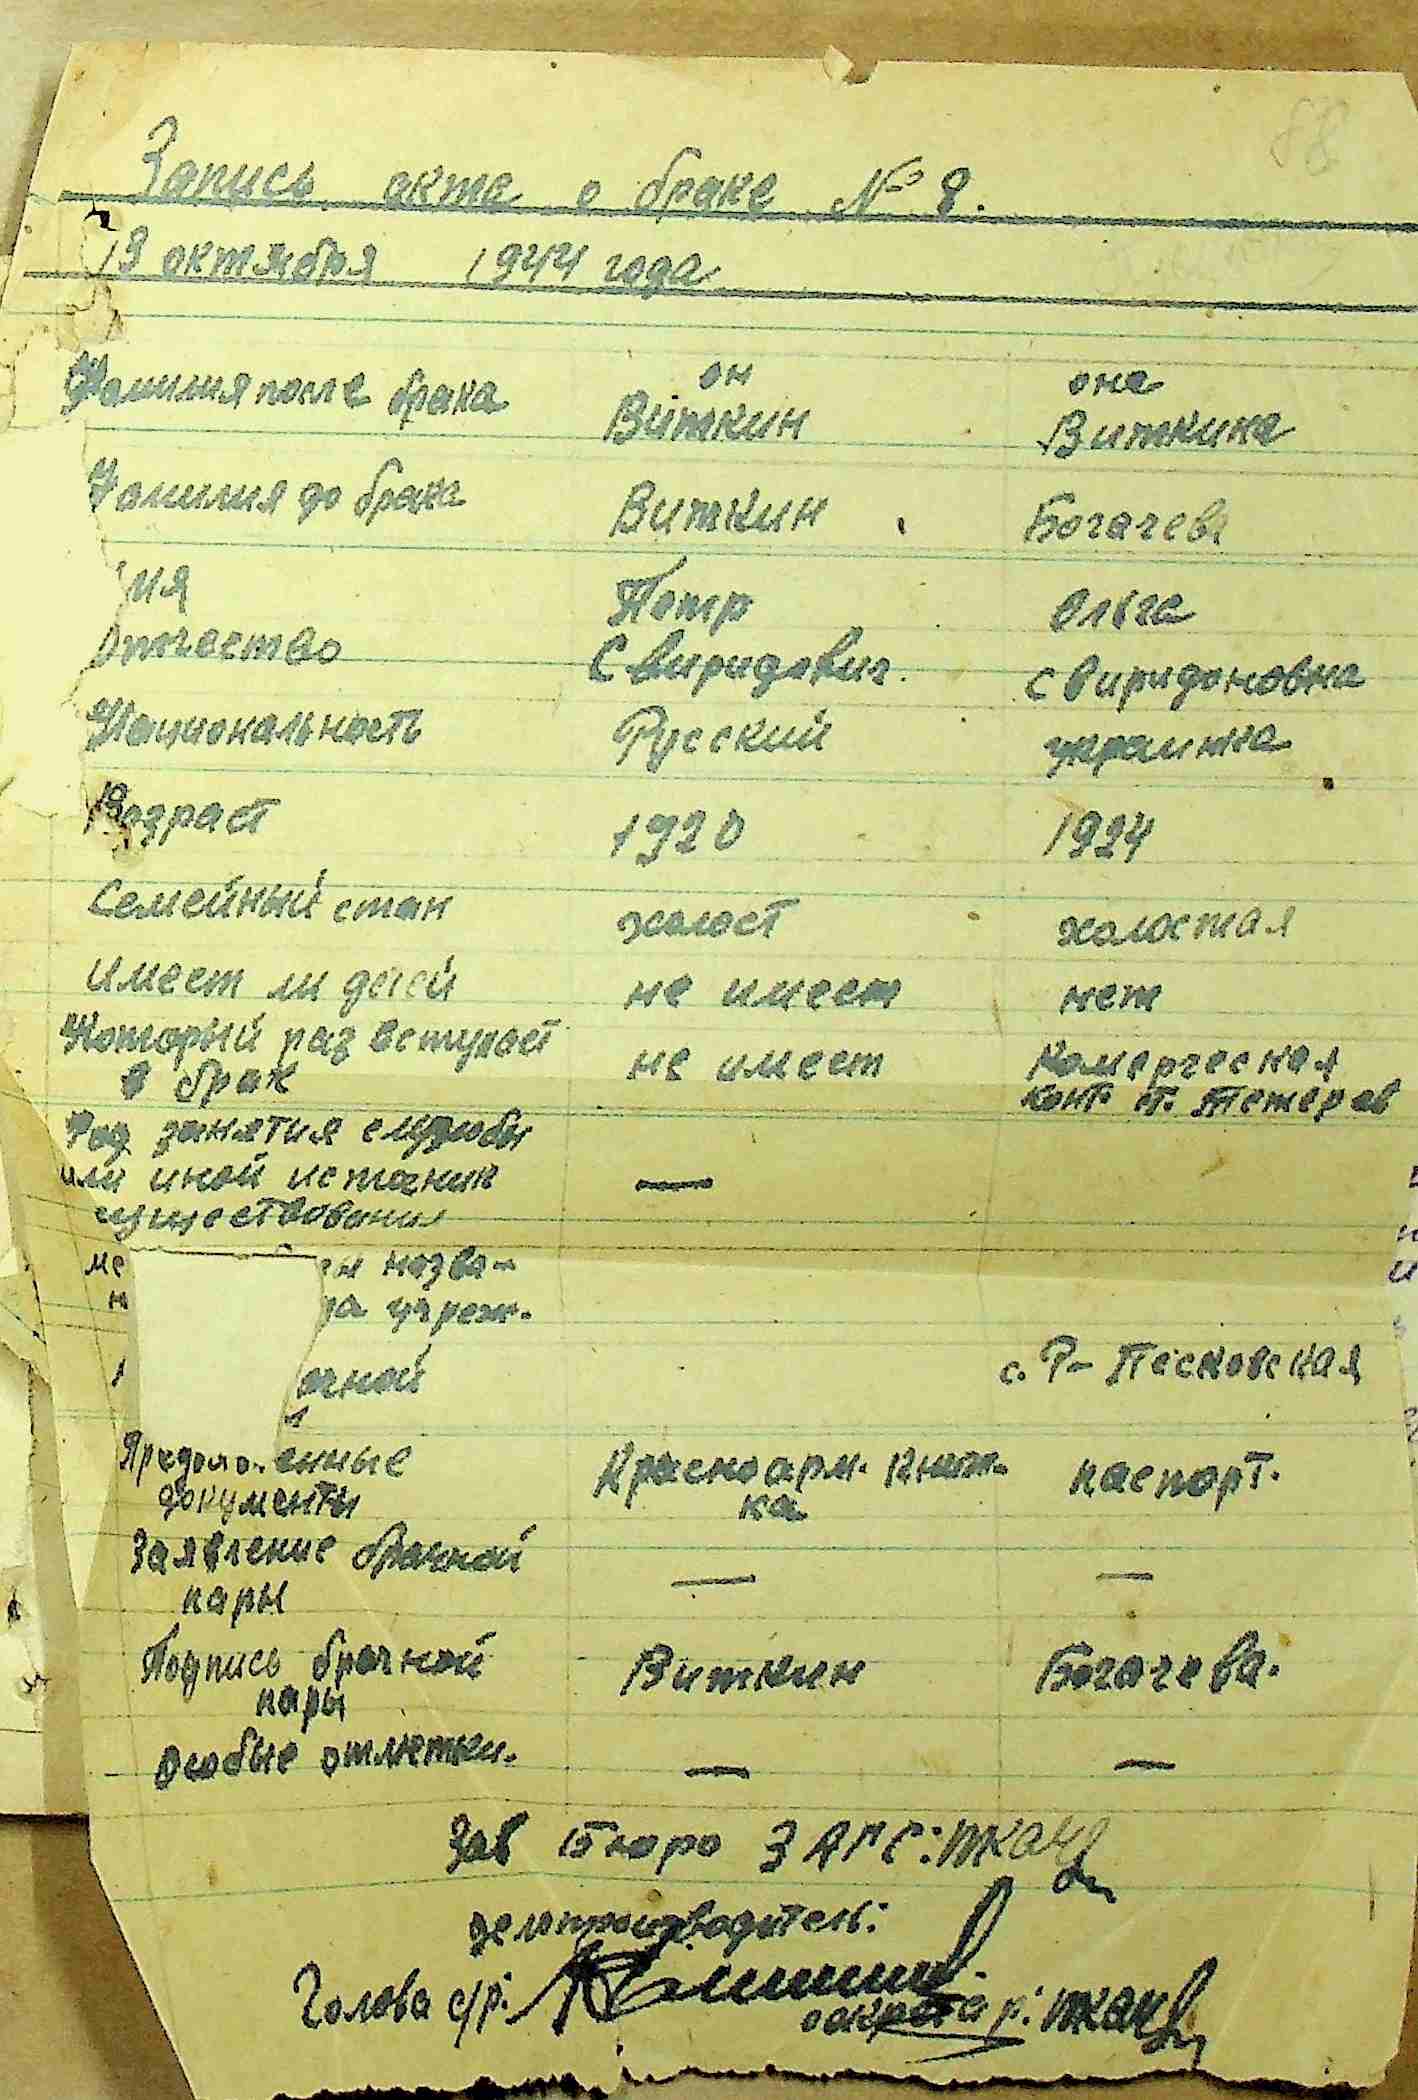 88
Запись акта о браке № 8.
19 октября 1944 года
он она
Фамилия после брака Виткин Виткина
Фамилия до брака Виткин Богачева
Имя Петр Ольга
Отчество Свиридович. Свиридоновна
Национальность Русский украинка
Возраст 1920 1924
Семейный стан холост холостая
имеет ли детей не имеет нет
Который раз вступает не имеет Комерческая
в брак конт. ст. Тетерев
Род занятия службы
или иной источник —
существования
назва-
учреж.
с. Р-Песковская
Предложенные Красноарм. книж- паспорт.
документы ка
Заявление брачной — —
пары
Подпись брачной Виткин Богачева.
пары
Особые отметки. — —
Зав Бюро ЗАГС: Ткач
делопроизводитель:
Голова с/р: секретар: Ткач